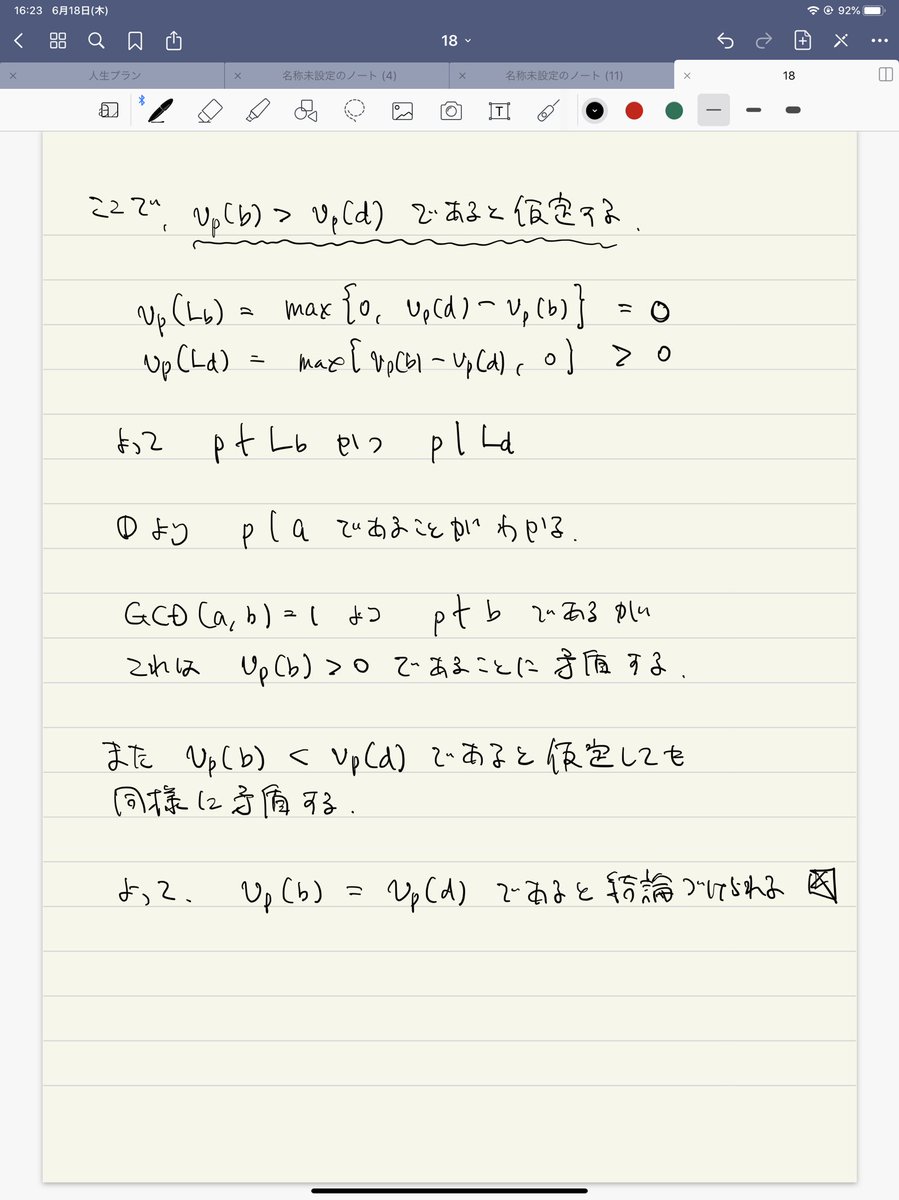 16:23 6月18日(木) 92%
18
人生プラン 名称未設定のノート (4) 名称未設定のノート (11) 18
ここで, νp(b) > νp(d) であると仮定する.
νp(Lb) = max{0, νp(d) − νp(b)} = 0
νp(Ld) = max{νp(b) − νp(d), 0} > 0
よって p∤Lb かつ p|Ld
①より p|a であることがわかる.
GCD(a,b)=1 より p∤b であるが
これは νp(b)>0 であることに矛盾する.
また νp(b) < νp(d) であると仮定しても
同様に矛盾する.
よって. νp(b) = νp(d) であると結論づけられる